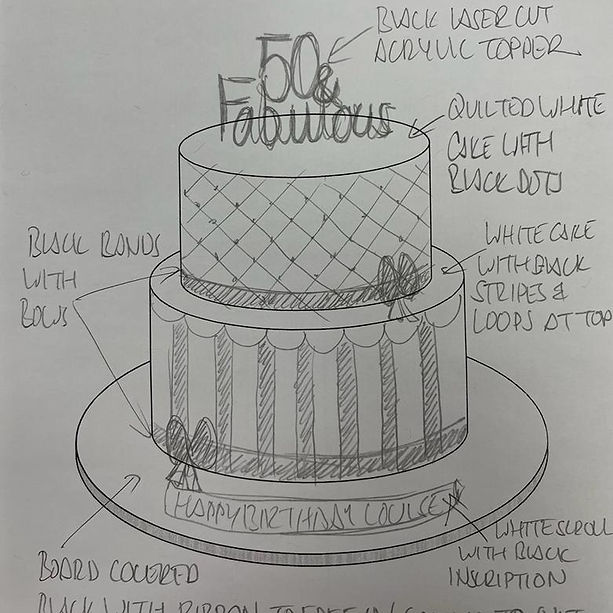 BLACK LASER CUT
ACRYLIC TOPPER
50 &
Fabulous
QUILTED WHITE
CAKE WITH
BLACK DOTS
BLACK BANDS
WITH
BOWS
WHITE CAKE
WITH BLACK
STRIPES &
LOOPS AT TOP
HAPPY BIRTHDAY LOUISE X
WHITE SCROLL
WITH BLACK
INSCRIPTION
BOARD COVERED
BLACK WITH RIBBON TO EDGE IN